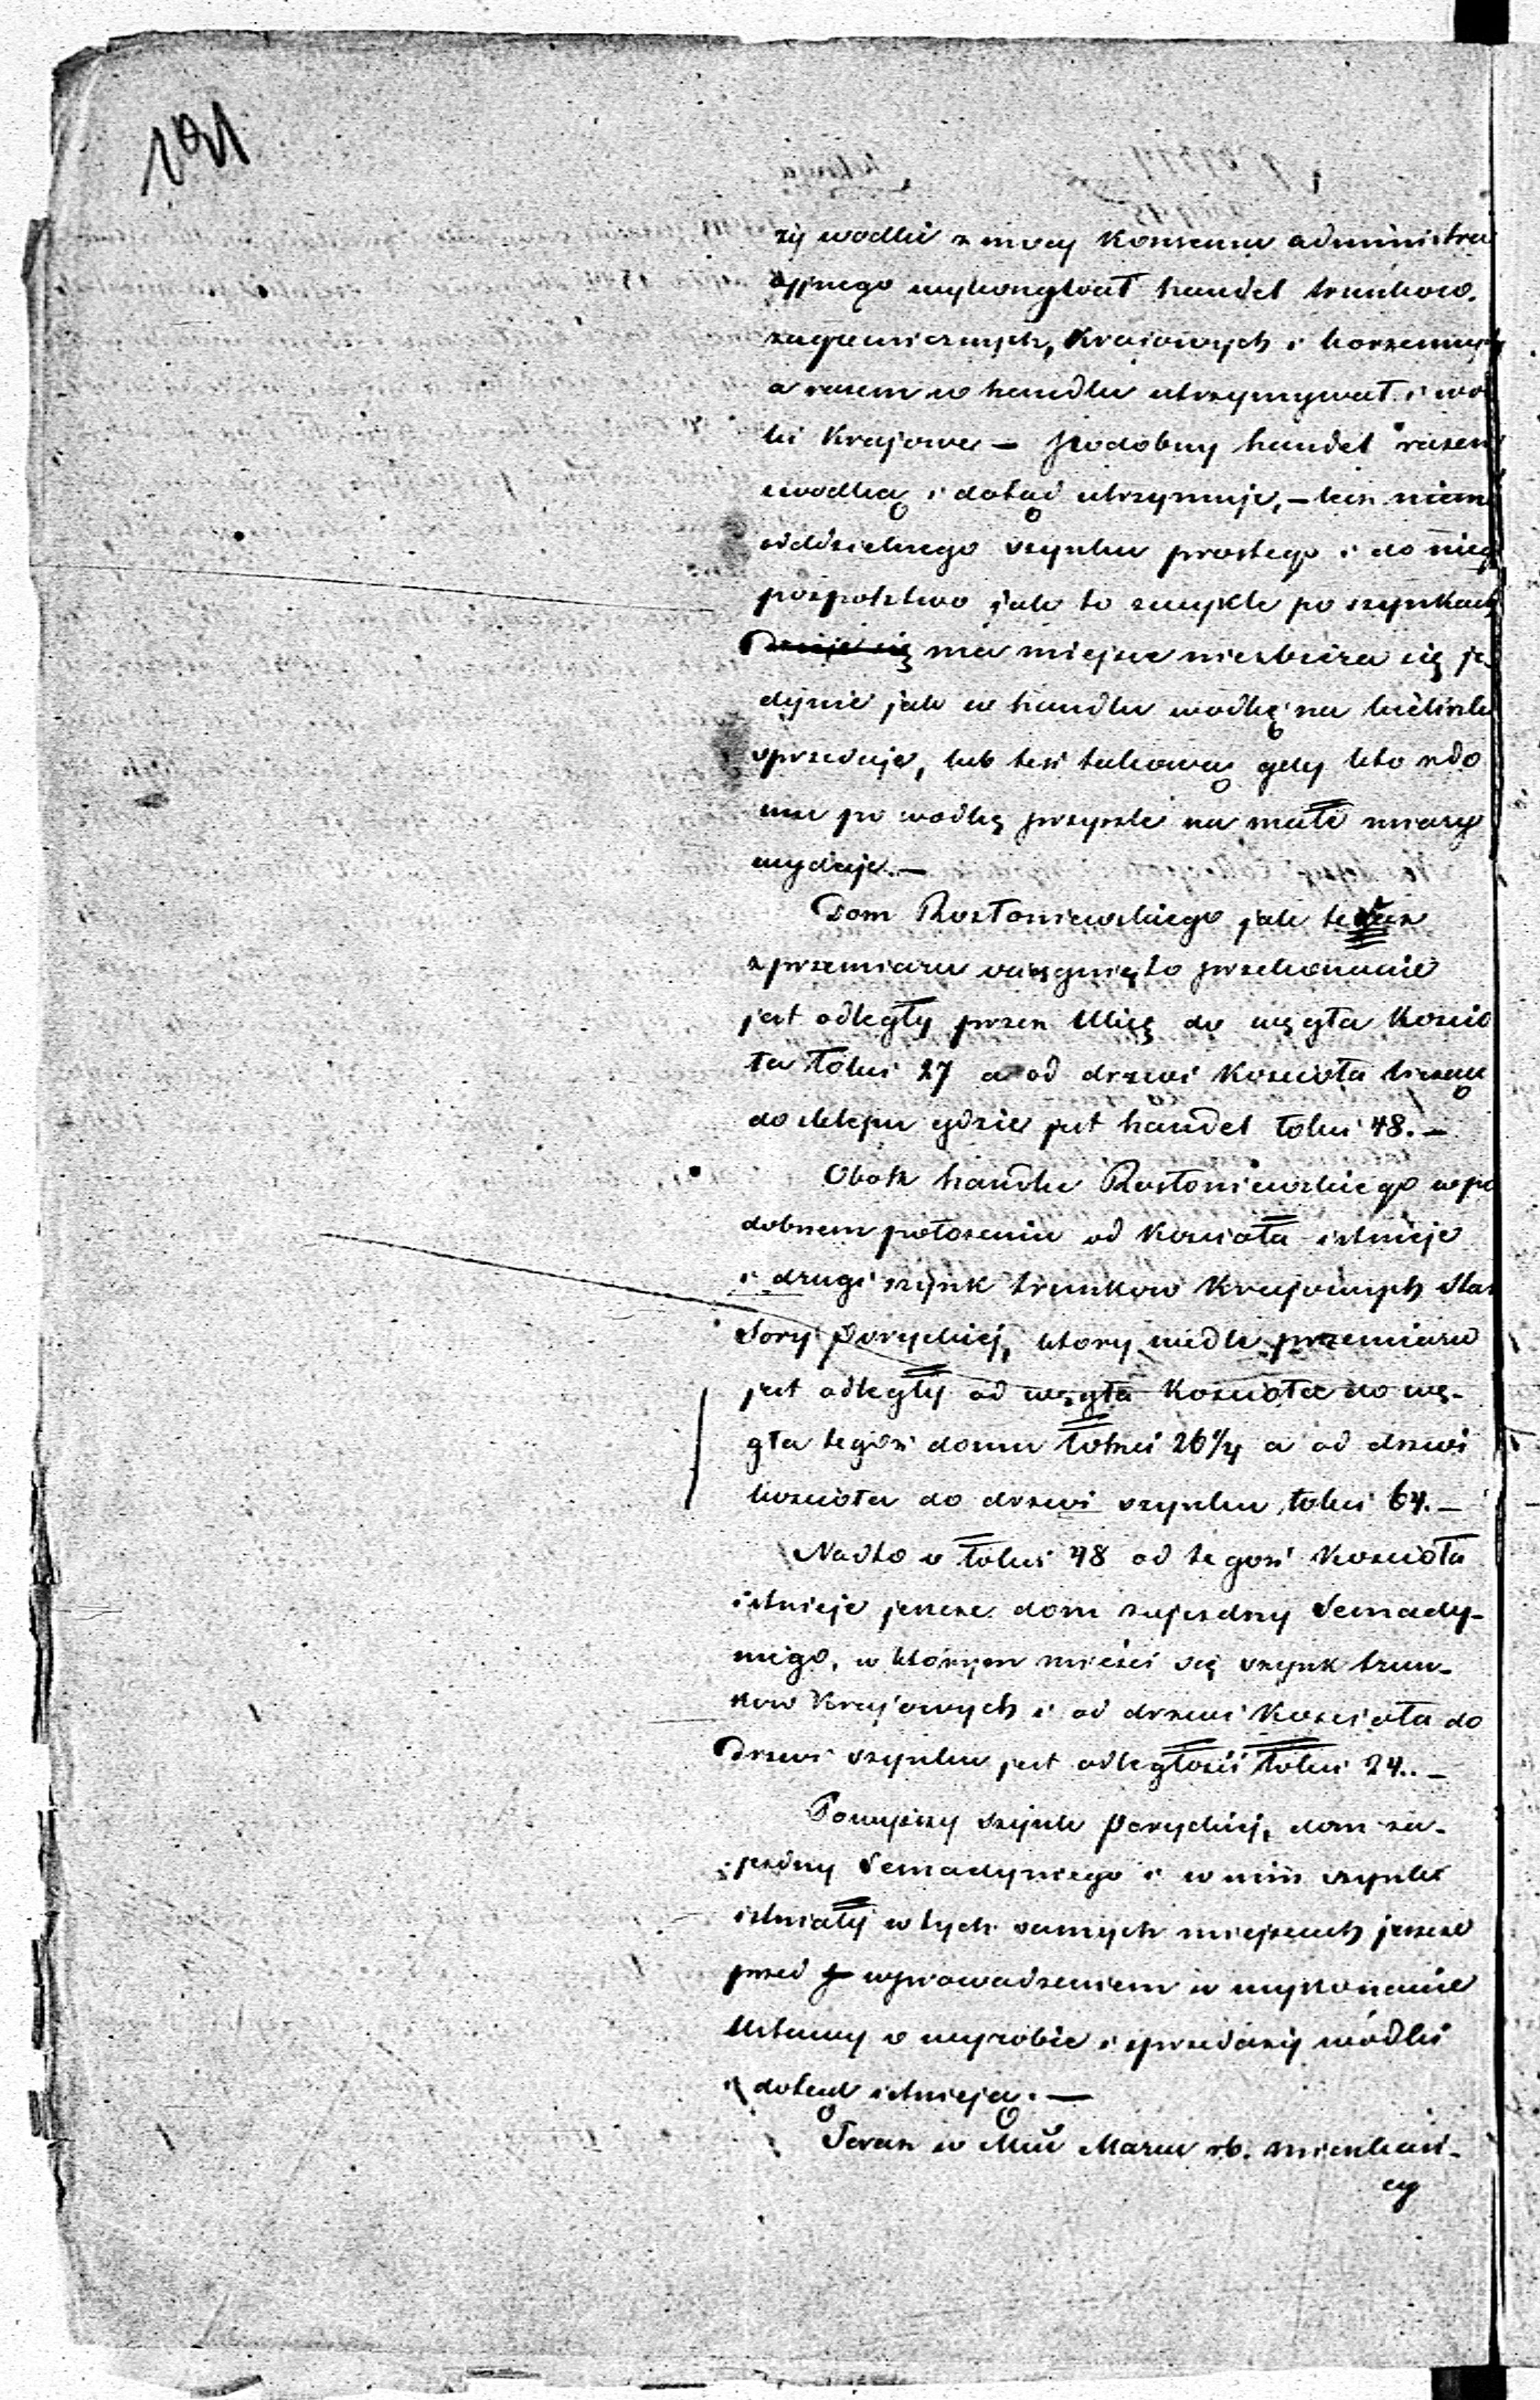 191
ży wodki z mocy Konsensu administra
cyjnego wykonywał handel trunkow
zagranicznych, Krajowych i korzennych
a razem w handlu utrzymywał i wod
ki Krajowe — Podobny handel razem
wodką i dotąd utrzymuje, — lecz niema
oddzielnego szynku prostego i do niego
pospolstwo jak to zwykle po szynkach
ma miejsce niezbiera się je
dynie jak w handlu wodkę na kieliszki
sprzedaje, lub też takową gdy kto z do
mu po wodkę przyszle na małe miary
wydaje. —
Dom Rostoniewskiego jak teraz
z przemiaru osiągnięto przekonanie
jest odległy przez Ulicę do węgła Koscio
ła łokci 27 a od drzwi Koscioła licząc
do sklepu gdzie jest handel łokci 48. —
Obok handlu Rostoniewskiego w po
dobnem położeniu od Koscioła istnieje
i drugi szynk trunkow Krajowych Sta
Sory Poryckiej, ktory wedle przemiaru
jest odległy od węgła Kosciola do wę-
gła tegoż domu łokci 26 1/4 a od drzwi
kosciola do drzwi szynku łokci 64. —
Nadto o łokci 48 od tegoż Kosciola
istnieje jeszcze dom zajezdny Semady-
niego, w którym mieści się szynk trun-
kow Krajowych i od drzwi Kosciola do
Drzwi szynku jest odległości łokci 24. —
Powyższy szynk Poryckiej, dom za-
jezdny Semadyniego i w nim szynk
istniały w tych samych miejscach jeszcze
przed wprowadzeniem w wykonanie
Ustawy o wyrobie i sprzedaży wódki
i dotąd istnieją. —
Teraz w Mcu Marcu rb. mieszkań-
cy